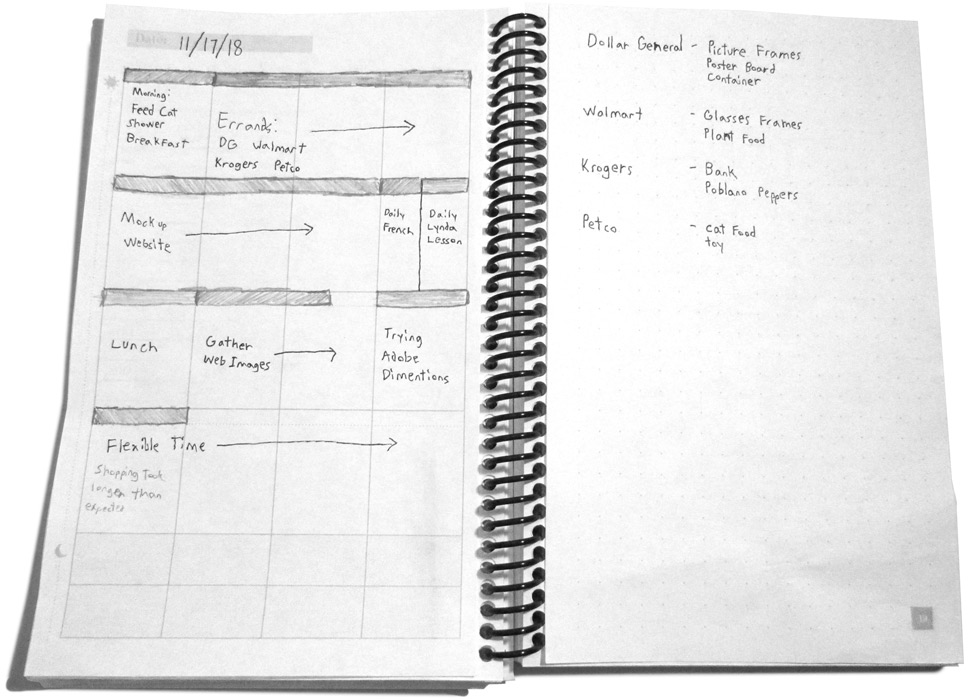 Date: 11/17/18
Morning:
Feed Cat
Shower
Breakfast
Errands:
DG Walmart
Krogers Petco
Mock up
Website
Daily
French
Daily
Lynda
Lesson
Lunch
Gather
Web Images
Trying
Adobe
Dimentions
Flexible Time
Shopping Took
longer than
expected
Dollar General - Picture Frames
Poster Board
Container
Walmart - Glasses Frames
Plant Food
Krogers - Bank
Poblano Peppers
Petco - Cat Food
toy